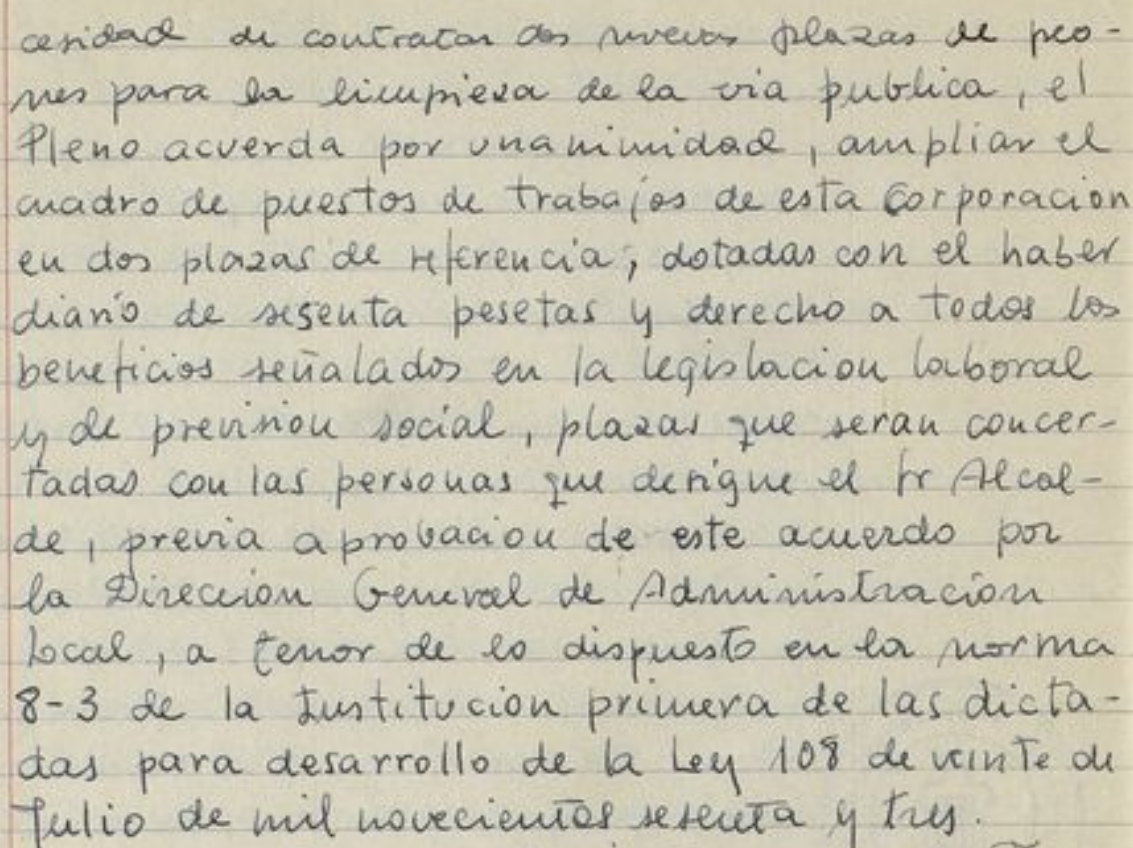 cesidad de contratar dos nuevas plazas de peo-
nes para la limpieza de la via publica, el
Pleno acuerda por unanimidad, ampliar el
cuadro de puestos de trabajos de esta Corporacion
en dos plazas de referencia, dotadas con el haber
diario de sesenta pesetas y derecho a todos los
beneficios señalados en la legislacion laboral
y de prevision social, plazas que seran concer-
tadas con las personas que designe el Sr Alcal-
de, previa aprobacion de este acuerdo por
la Direccion General de Administración
local, a tenor de lo dispuesto en la norma
8-3 de la Institucion primera de las dicta-
das para desarrollo de la Ley 108 de veinte de
Julio de mil novecientos sesenta y tres.